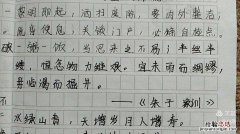 黎明即起，洒扫庭除，要内外整洁；
既昏便息，关锁门户，必亲自检点。
一粥一饭，当思来之不易；半丝半
缕，恒念物力维艰。宜未雨而绸缪，
毋临渴而掘井。
——《朱子家训》
天增岁月人增寿。